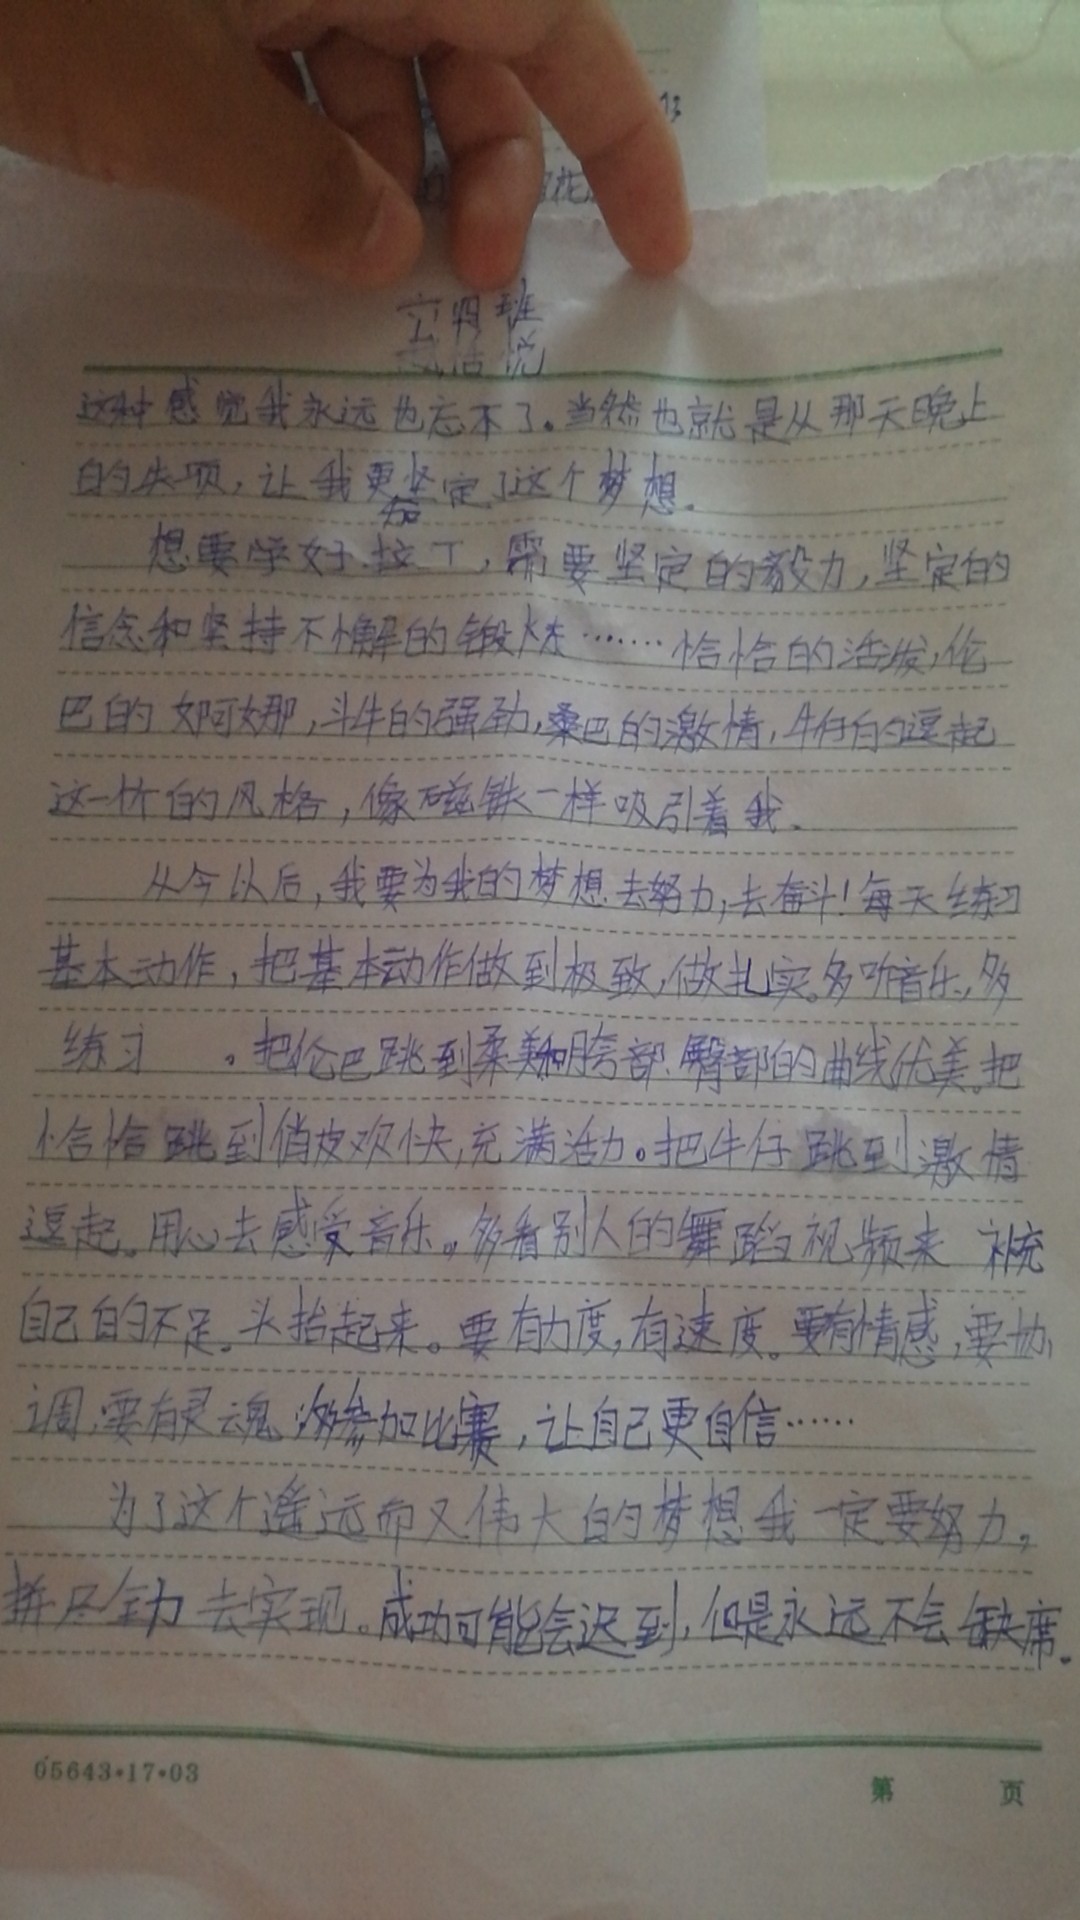 这种感觉我永远也忘不了。当然也就是从那天晚上
的失项,让我更加坚定了这个梦想。
想要学好拉丁,需要坚定的毅力,坚定的
信念和坚持不懈的锻炼……恰恰的活泼,伦
巴的婀娜,斗牛的强劲,桑巴的激情,牛仔的逗起
这一个的风格,像磁铁一样吸引着我。
从今以后,我要为我的梦想去努力,去奋斗!每天练习
基本动作,把基本动作做到极致,做扎实。多听音乐,多
练习 。把伦巴跳到柔美和胯部、臀部的曲线优美。把
恰恰跳到俏皮欢快,充满活力。把牛仔跳到激情
逗起。用心去感受音乐。多看别人的舞蹈视频来 补充
自己的不足。头抬起来。要有力度,有速度。要有情感,要协
调,要有灵魂 多参加比赛,让自己更自信……
为了这个遥远而又伟大的梦想我一定要努力,
拼尽全力去实现。成功可能会迟到,但是永远不会缺席。
05643·17·03
第 页